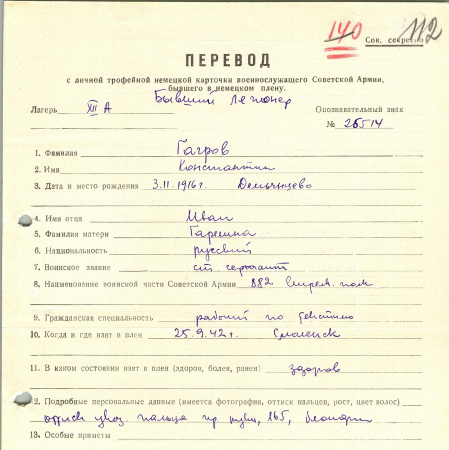 140 112
Сов. секретно
ПЕРЕВОД
с личной трофейной немецкой карточки военнослужащего Советской Армии,
бывшего в немецком плену.
Бывший легионер
Лагерь XII А Опознавательный знак
№ 26514
1. Фамилия Гагров
2. Имя Константин
3. Дата и место рождения 3.11.1916г.
4. Имя отца Иван
5. Фамилия матери
6. Национальность русский
7. Воинское звание ст. сержант
8. Наименование воинской части Советской Армии 882 Стрелк. полк
9. Гражданская специальность рабочий по текстилю
10. Когда и где взят в плен 25.9.42г. Смоленск
11. В каком состоянии взят в плен (здоров, болен, ранен) здоров
2. Подробные персональные данные (имеется фотография, оттиск пальцев, рост, цвет волос)
оттиск указ. пальца пр. руки, 165, блондин
13. Особые приметы